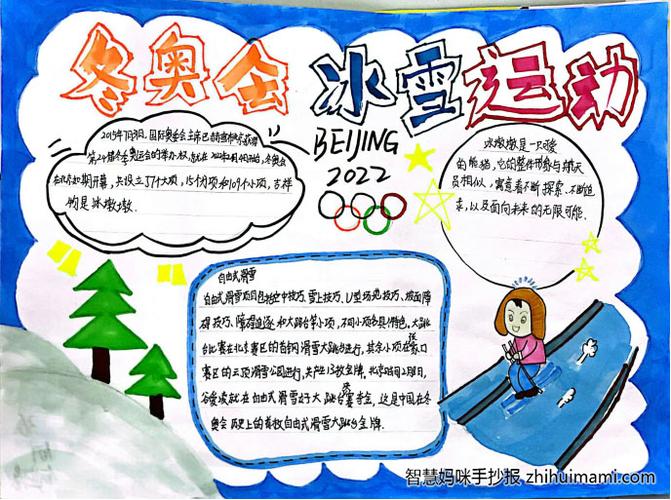 冬奥会 冰雪运动
BEIJING
2022
2015年7月31日,国际奥委会主席巴赫
第24届冬季奥运会的举办权,
冬奥会
在北京如期开幕,共设立7个大项,15个分项和109个小项,吉祥
物是冰墩墩.
冰墩墩是一只可爱
的熊猫,它的整体形象与航天
员相似,寓意着不断探索、不断追
求,以及面向未来的无限可能.
自由式滑雪
自由式滑雪项目包括空中技巧、雪上技巧、U型场地技巧、坡面障
碍技巧、障碍追逐和大跳台等小项,不同小项各具特色。大跳
台比赛在北京赛区的首钢滑雪大跳台进行,其余小项在张家口
赛区的云顶滑雪公园进行,共产生13枚金牌。北京时间2月8日,
谷爱凌就在自由式滑雪女子大跳台赛夺金,这是中国在冬
奥会历史上的首枚自由式滑雪大跳台金牌.
智慧妈咪手抄报 zhihuimami.com